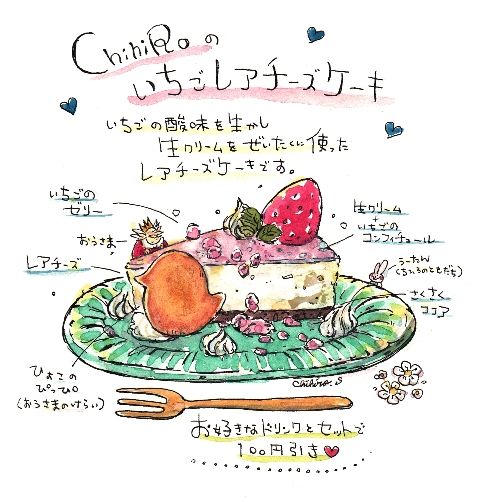 ChihiRoの
いちごレアチーズケーキ
いちごの酸味を生かし
生クリームをぜいたくに使った
レアチーズケーキです。
いちごの
ゼリー
おうさま
レアチーズ
生クリーム
+
いちごの
コンフィチュール
うーたん
(ちひろのともだち)
さくさく
ココア
ひよこの
ぴっぴ
(おうさまのけらい)
chihiro.S
お好きなドリンクとセットで
100円引き